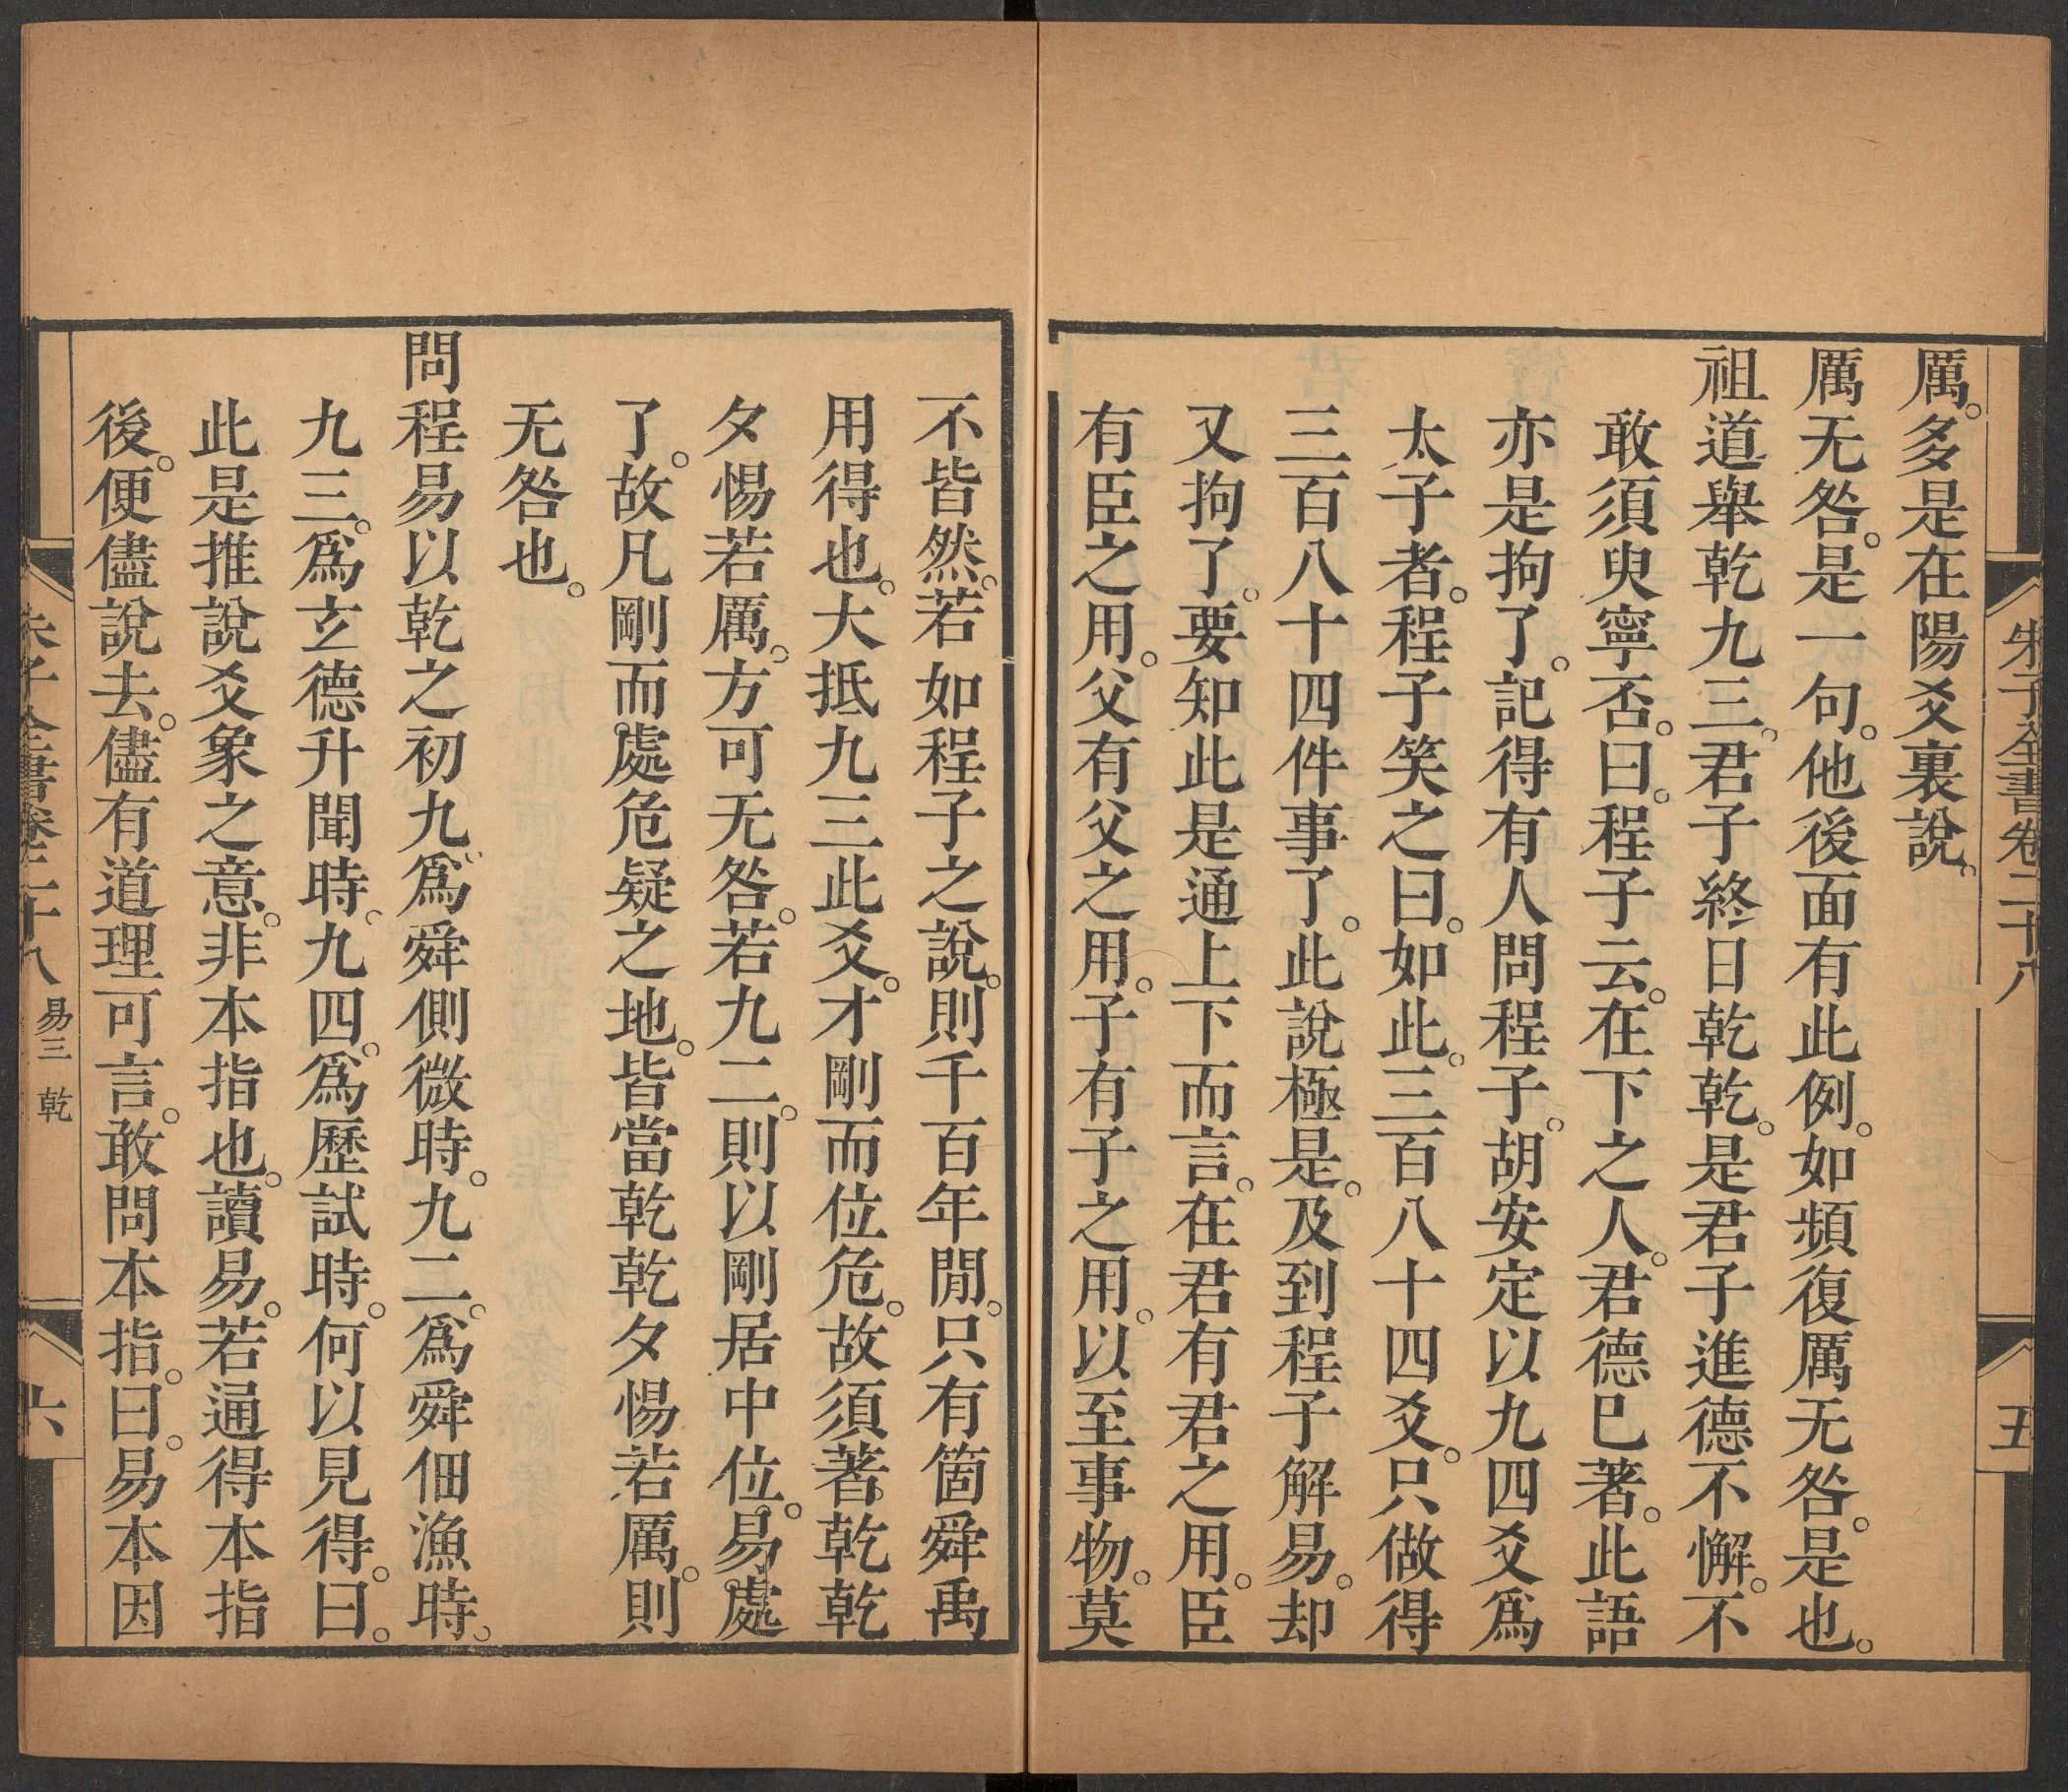 朱子全書卷二十八
五
厲。多是在陽爻裏說。
厲无咎。是一句。他後面有此例。如頻復厲无咎。是也。
祖道舉乾九三。君子終日乾乾。是君子進德不懈。不
敢須臾寧否。曰。程子云。在下之人。君德已著。此語
亦是拘了。記得有人問程子。胡安定以九四爻爲
太子者。程子笑之曰。如此。三百八十四爻。只做得
三百八十四件事了。此說極是。及到程子解易。却
又拘了。要知此是通上下而言。在君有君之用。臣
有臣之用。父有父之用。子有子之用。以至事物。莫
不皆然。若如程子之說。則千百年閒。只有箇舜禹
用得也。大抵九三此爻。才剛而位危。故須著乾乾
夕惕若厲。方可无咎。若九二。則以剛居中位。易處
了。故凡剛而處危疑之地。皆當乾乾夕惕若厲。則
无咎也。
問程易以乾之初九。爲舜側微時。九二。爲舜佃漁時。
九三。爲玄德升聞時。九四。爲歷試時。何以見得。曰。
此是推說爻象之意。非本指也。讀易。若通得本指
後。便儘說去。儘有道理可言。敢問本指。曰。易本因
朱子全書卷二十八 易三 乾
六